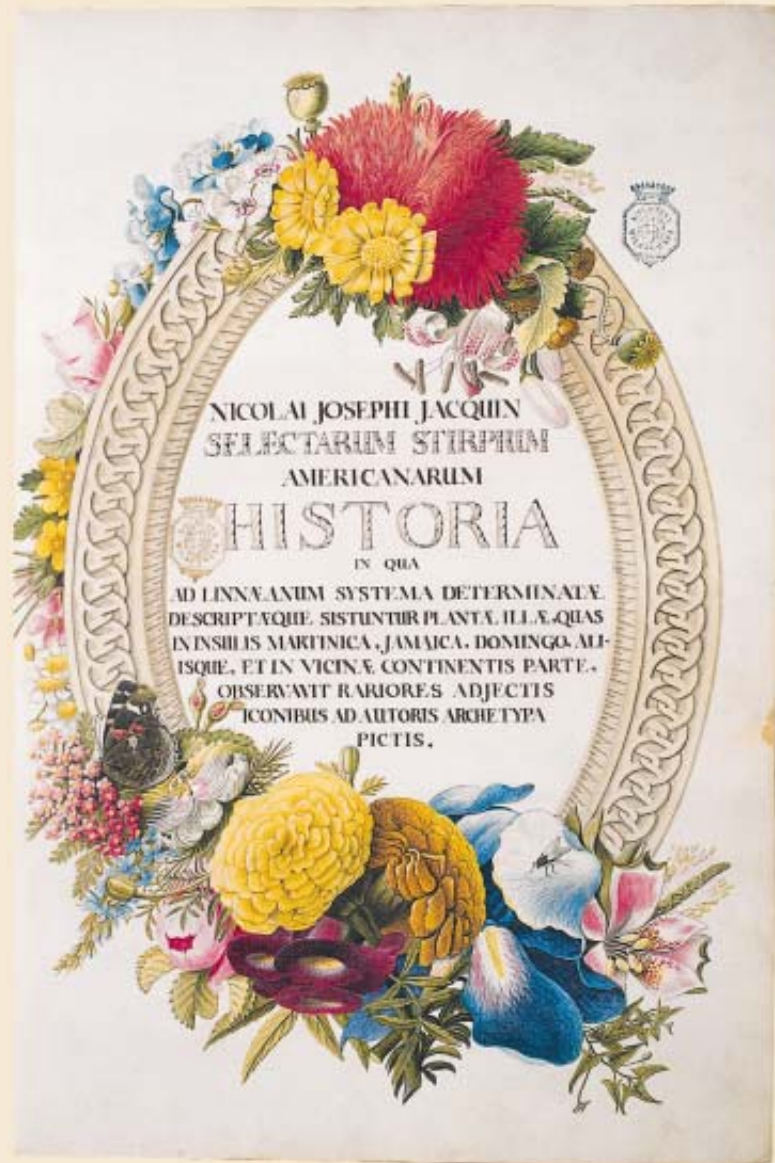 NICOLAI JOSEPHI JACQUIN
SELECTARUM STIRPIUM
AMERICANARUM
HISTORIA
IN QUA
AD LINNÆANUM SYSTEMA DETERMINATÆ
DESCRIPTÆQUE SISTUNTUR PLANTÆ ILLÆ, QUAS
IN INSULIS MARTINICA, JAMAICA, DOMINGO, ALI-
ISQUE, ET IN VICINÆ CONTINENTIS PARTE,
OBSERVAVIT RARIORES ADJECTIS
ICONIBUS AD AUTORIS ARCHETYPA
PICTIS.